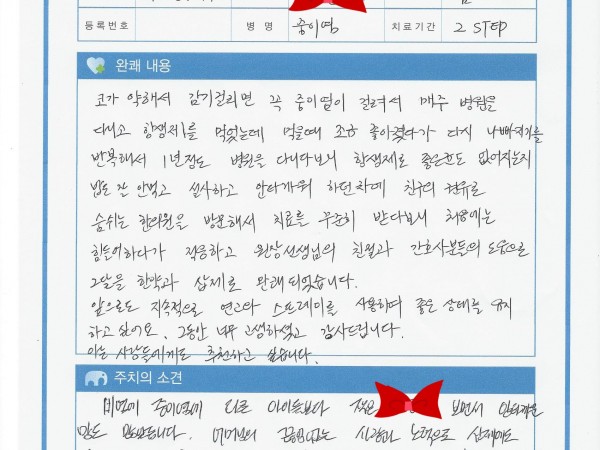 등록번호 병명 중이염 치료기간 2 STEP
완쾌 내용
코가 약해서 감기걸리면 꼭 중이염이 걸려서 매주 병원을
다니고 항생제를 먹었는데 먹을때 조금 좋아졌다가 다시 나빠지기를
반복해서 1년정도 병원을 다니다보니 항생제로 좋은균도 없어지는지
밥도 잘 안먹고 설사하고 안타까워 하던차에 친구의 권유로
숨쉬는 한의원을 방문해서 치료를 꾸준히 받다보니 처음에는
힘들어하다가 적응하고 원장선생님의 친절과 간호사분들의 도움으로
2달을 한약과 삽제로 완쾌되었습니다.
앞으로도 지속적으로 연고와 스프레이를 사용하며 좋은 상태를 유지
하고 싶어요. 그동안 너무 고생하셨고 감사드립니다.
아는 사람들에게도 추천하고 싶습니다.
주치의 소견
비염에 중이염에 다른 아이들보다 작은 보면서 안타까운
맘도 많았습니다. 어머님의 노력으로 삽제에도